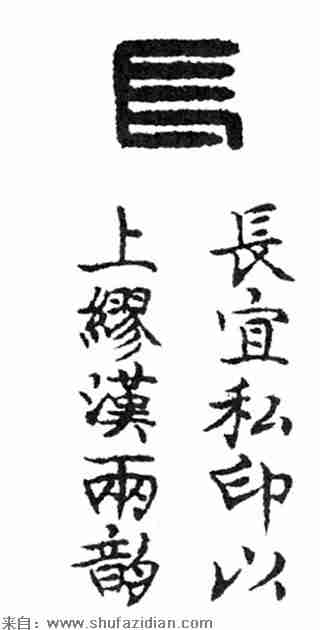 長
長宜私印以
上繆漢兩韵
来自：www.shufazidian.com